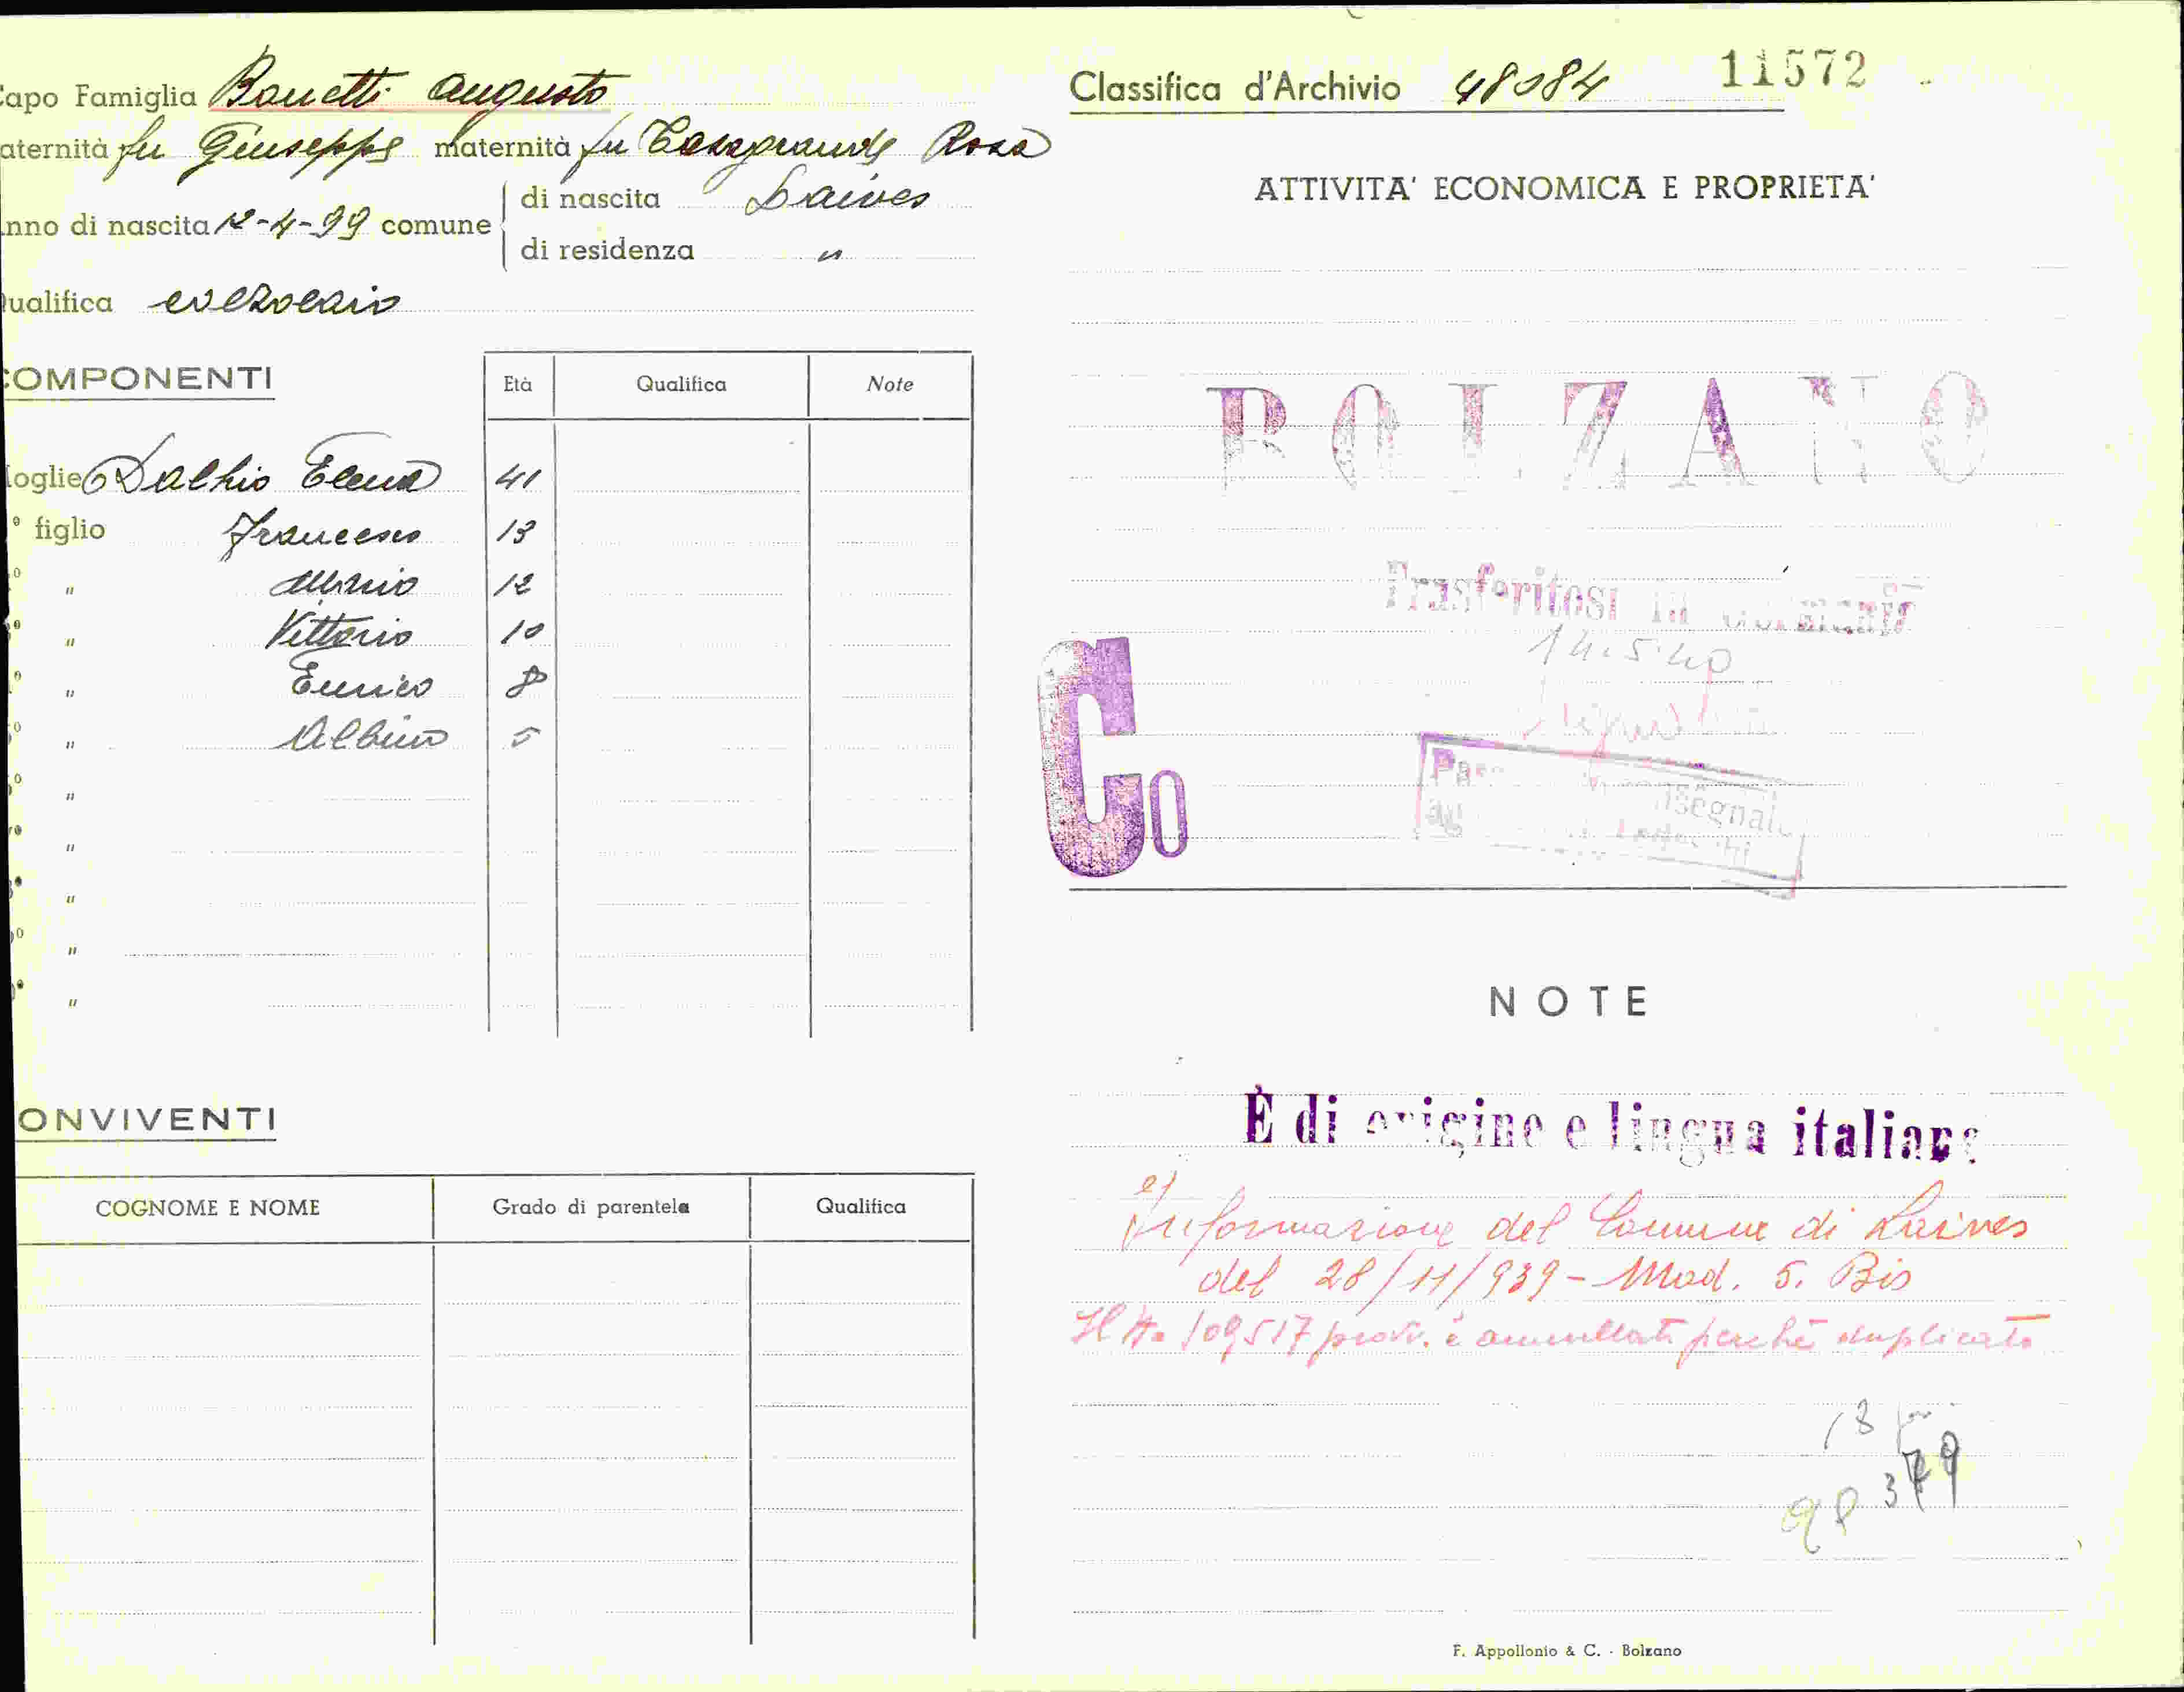 Capo Famiglia Bonetti Augusto
paternità fu Giuseppe maternità fu Casagrande Rosa
Anno di nascita 12-4-99 comune
di nascita Laives
di residenza "
Qualifica calzolaio
COMPONENTI
Età Qualifica Note
Moglie Dalhio Elena 41
° figlio Francesco 13
" 12
" Vittorio 10
" Enrico 8
" Albino 5
"
"
"
"
"
CONVIVENTI
COGNOME E NOME Grado di parentela Qualifica
Classifica d'Archivio 48084 11572
ATTIVITA' ECONOMICA E PROPRIETA'
BOLZANO
Trasferitosi in Germania
14.5.40
Co
NOTE
È di origine e lingua italiana
Informazione del Comune di Laives
del 28/11/939 - Mod. 5. Bis
Il N. 109517 provv. è annullato perché duplicato
18
379
F. Appollonio & C. - Bolzano